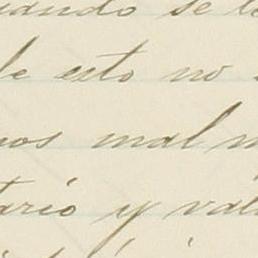 uando se le
de esto no
nos mal
tario y val